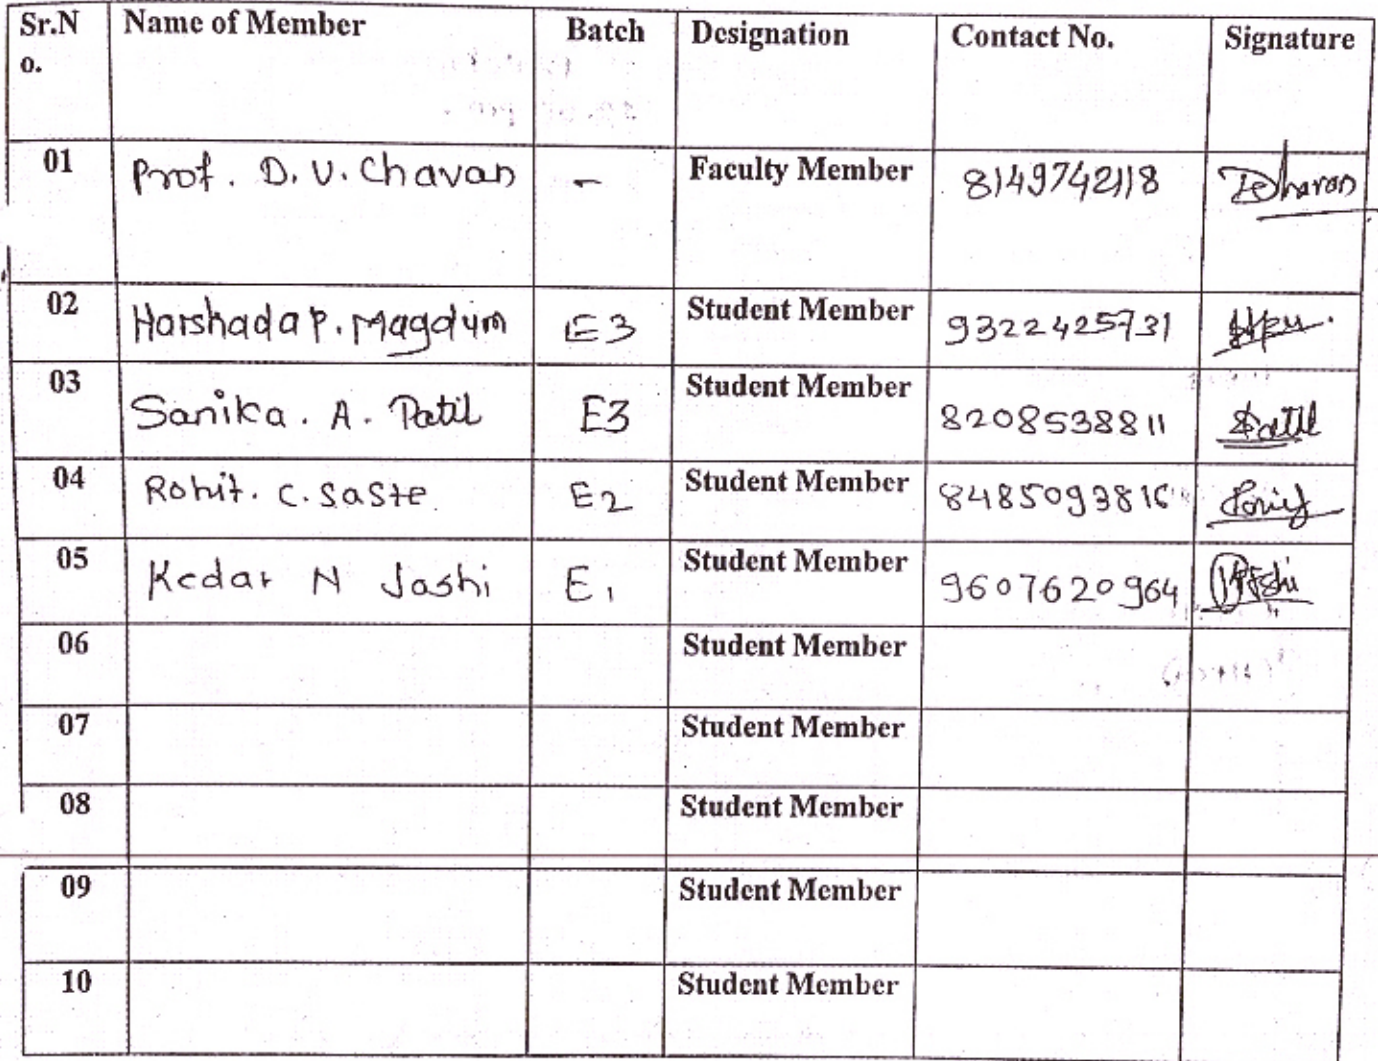 Sr.N Name of Member Batch Designation Contact No. Signature
o.
01 Prof. D. V. Chavan - Faculty Member 8149742118
02 Harshada P. Magdum E3 Student Member 9322425731
03 Sanika. A. Patil E3 Student Member 8208538811 Patil
04 Rohit. C. Saste E2 Student Member 8485093816
05 Kedar N Joshi E1 Student Member 9607620964
06 Student Member
07 Student Member
08 Student Member
09 Student Member
10 Student Member